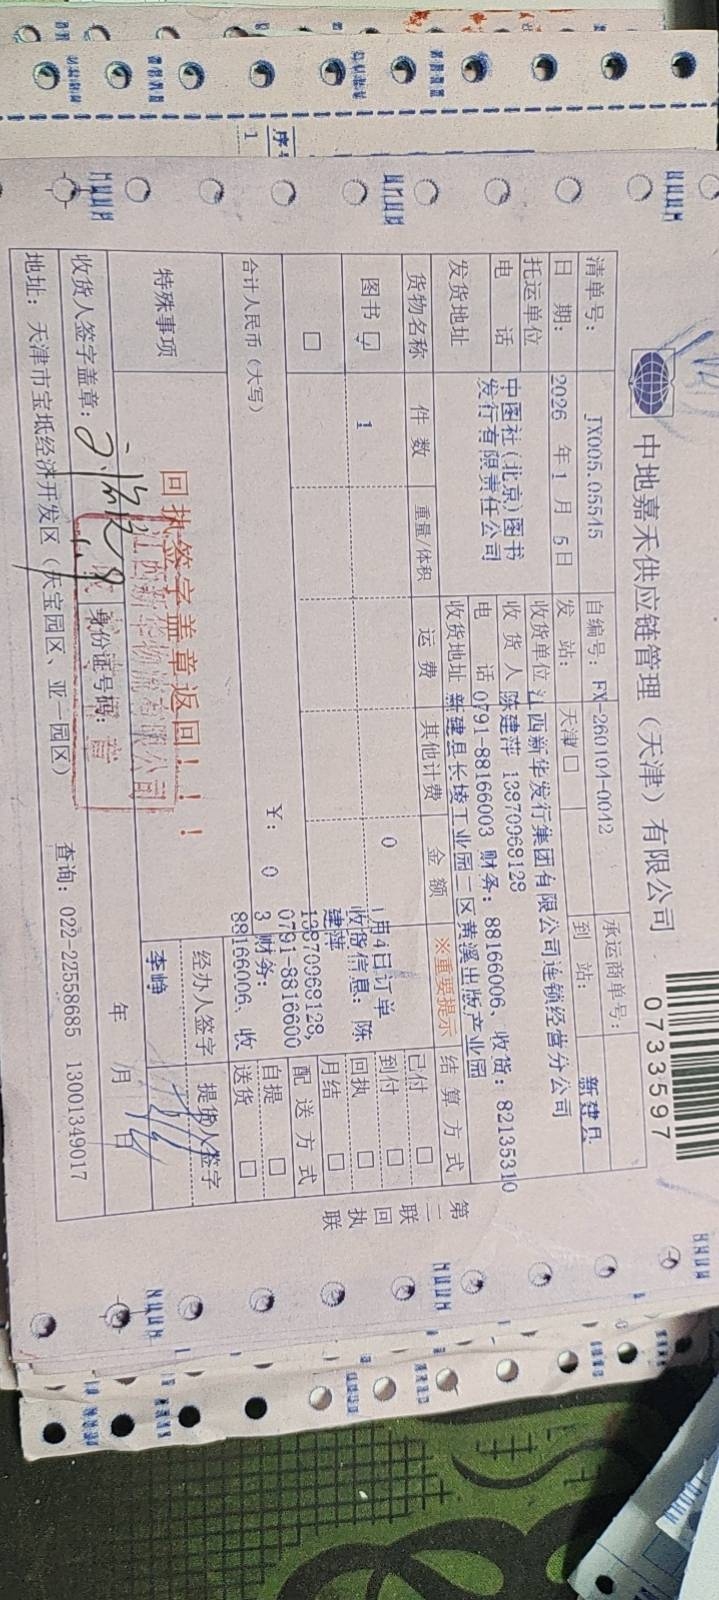 中地嘉禾供应链管理（天津）有限公司
0733597
清单号： JX005.05545 自编号：FX-260104-0042 承运商单号：
日 期： 2026 年 1 月 5 日 发 站： 天津 □ 到 站： 新建县
托运单位 中图社(北京)图书发行有限责任公司 收货单位 江西新华发行集团有限公司连锁经营分公司
电 话 收 货 人 陈建萍 13870968128
电 话 0791-88166003 财务：88166006、收货：82135310
发货地址 收货地址 新建县长堎工业园二区黄溪出版产业园
货物名称 件 数 重量/体积 运 费 其他计费 金 额 ※重要提示 结 算 方 式
图书 ☑ 1 0
□
1月4日订单
收货信息：陈
建萍
13870968128,
0791-8816600
3 财务：
88166006、收
已付 □
到付 □
回执 □
月结 □
配 送 方 式
自提 □
送货 □
合计人民币（大写） ￥： 0
特殊事项 回执签字盖章返回！！！
经办人签字 提货人签字
李峥
收货人签字盖章： 身份证号码： 年 月 日
江西新华物流有限公司
地址：天津市宝坻经济开发区（天宝园区、亚一园区） 查询：022-22558685 13001349017
第二联 回执联
序号
1